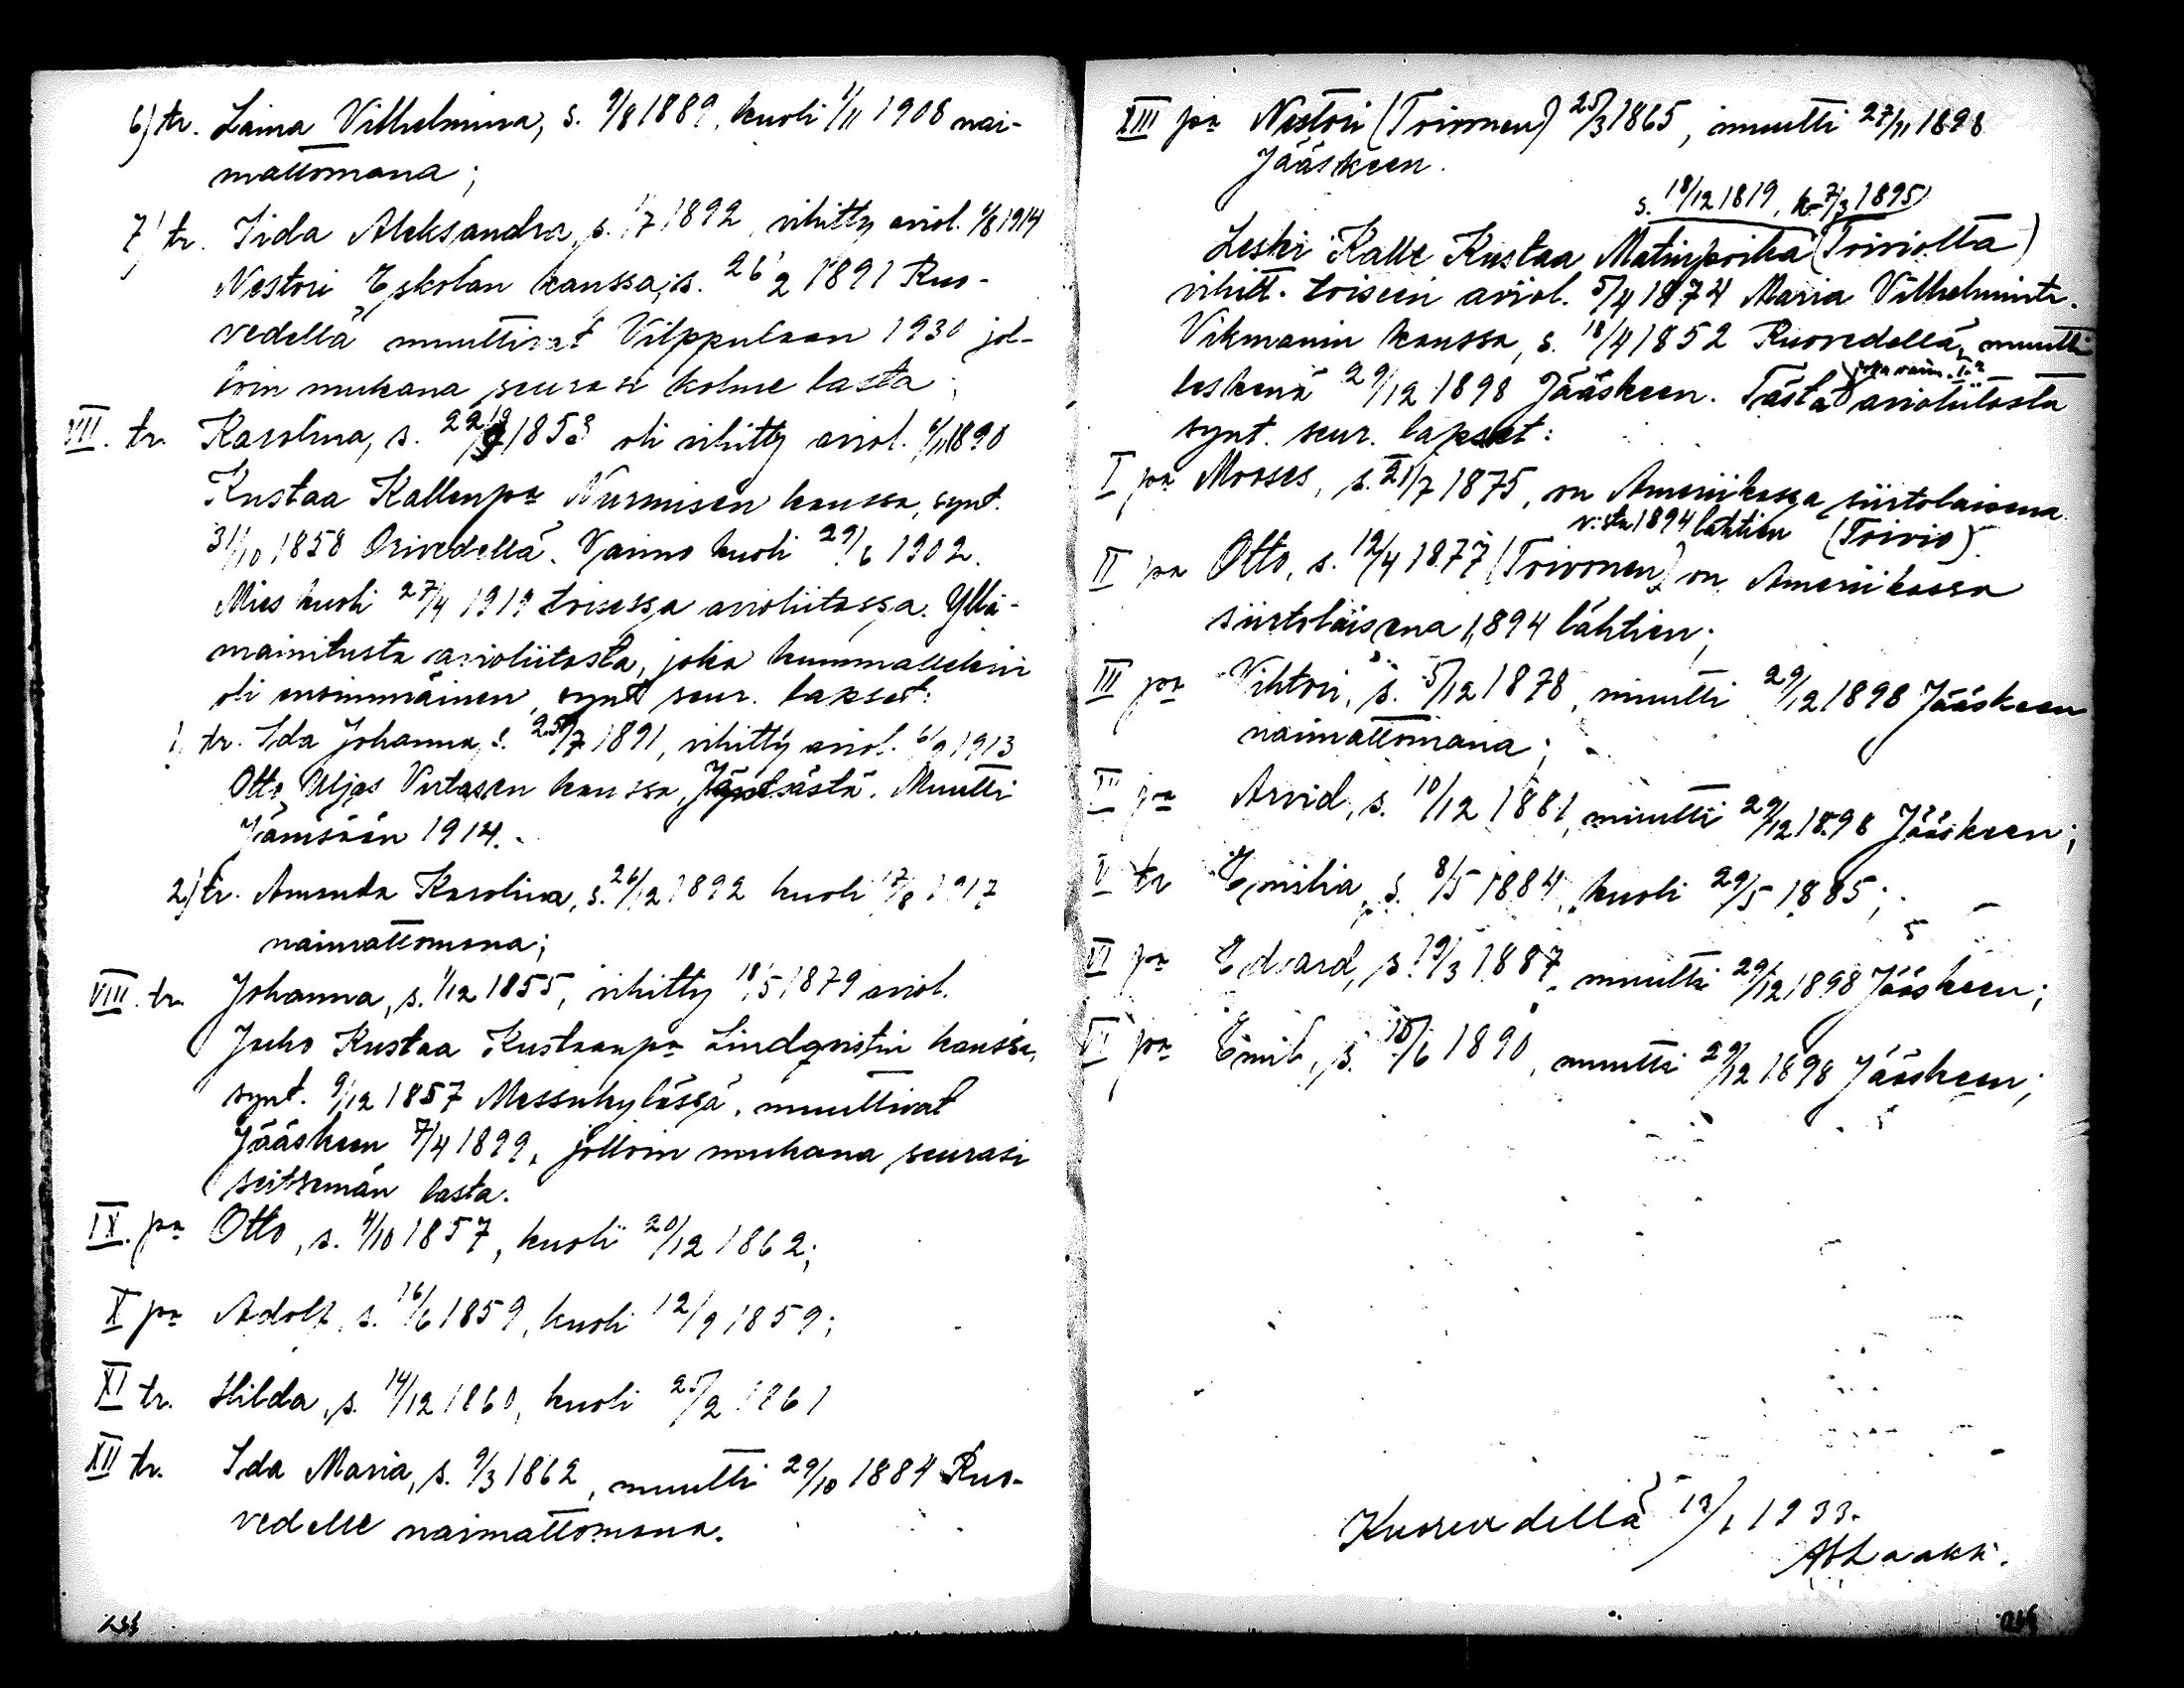 6) tr. Laina Vilhelmina, s. 9/8 1889, kuoli 1/11 1908 nai-
mattomana;
7) tr. Iida Aleksandra, s. 1/7 1892, vihitty aviol. 1/8 1914
Nestori Eskolan kanssa, s. 26/2 1891 Ruo-
vedellä muuttivat Vilppulaan 1930 jol-
loin mukana seurasi kolme lasta.
VII. tr. Karolina, s. 22/9 1853 oli vihitty aviol. 6/11 1890
Kustaa Kallenpa Nurmisen kanssa, synt.
31/10 1858 Orivedellä. Vaimo kuoli 29/6 1902.
Mies kuoli 27/4 1919 toisessa avioliitossa. Yllä-
mainitusta avioliitosta, joka kummallekin
oli ensimmäinen, synt seur. lapset:
1, tr. Ida Johanna, s. 25/7 1891, vihitty aviol. 6/9 1913
Otto Uljas Virtasen kanssa, Muutti
Jämsään 1914.
2) tr. Amanda Karolina, s. 26/12 1892 kuoli 17/8 1917
naimattomana;
VIII. tr. Johanna, s. 1/12 1855, vihitty 18/5 1879 aviol.
Juho Kustaa Kustaanpa Lindqvistin kanssa,
synt. 9/12 1857 Messukylässä, muuttivat
Jääskeen 7/4 1899, jolloin mukana seurasi
seitsemän lasta.
IX. pa Otto, s. 4/10 1857, kuoli 20/12 1862;
X pa Adolf, s. 16/6 1859, kuoli 12/9 1859;
XI tr. Hilda, s. 14/12 1860, kuoli 25/2 1861
XII tr. Ida Maria, s. 9/3 1862, muutti 29/10 1884 Ruo-
vedelle naimattomana.
XIII pa Nestori (Toivonen) 25/3 1865, muutti 27/11 1898
Jääskeen.
s. 18/12 1819, k. 7/3 1895
Leski Kalle Kustaa Matinpoika (Toiviolta)
vihitt. toiseen aviol. 5/4 1874 Maria Vilhelmintr.
Vikmanin kanssa, s. 18/4 1852 Ruovedellä, muutti
leskenä 29/12 1898 Jääskeen. Tästä avioliitosta
synt. seur. lapset:
I pa Mooses, s. 21/7 1875, on Ameriikassa siirtolaisena
v:sta 1894 lähtien (Toivio).
II pa Otto, s. 12/4 1877 (Toivonen) on Ameriikassa
siirtolaisena 1894 lähtien;
III pa Vihtori, s. 5/12 1878, muutti 29/12 1898 Jääskeen
naimattomana;
pa Arvid, s. 10/12 1881, muutti 29/12 1898 Jääskeen;
V tr Emilia, s. 8/5 1884, kuoli 29/5 1885;
VI pa Edvard, s. 19/3 1887, muutti 29/12 1898 Jääskeen;
VI pa Emil, s. 10/6 1890, muutti 29/12 1898 Jääskeen;
Kuorevedellä 1933.